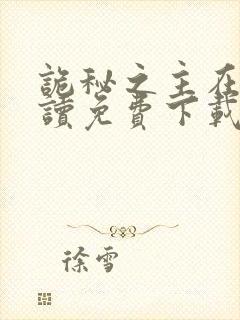 詭秘之主在
讀免費下載
徐雪